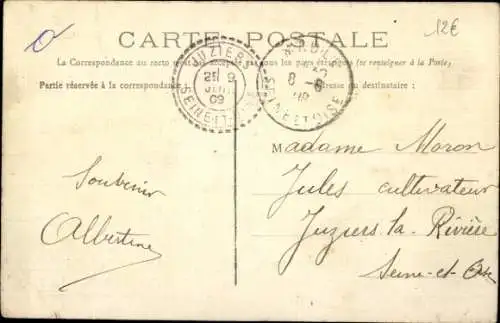 12€
CARTE POSTALE
La Correspondance au recto n'est pas acceptée par tous les pays étrangers (se renseigner à la Poste)
Partie réservée à la correspondance
Adresse du destinataire :
JUZIERS
9
09
SEINE-ET-OISE
8
SEINE-ET-OISE
Madame Moron
Jules cultivateur
Juziers la Rivière
Seine-et-Oise
Souvenir
Albertine